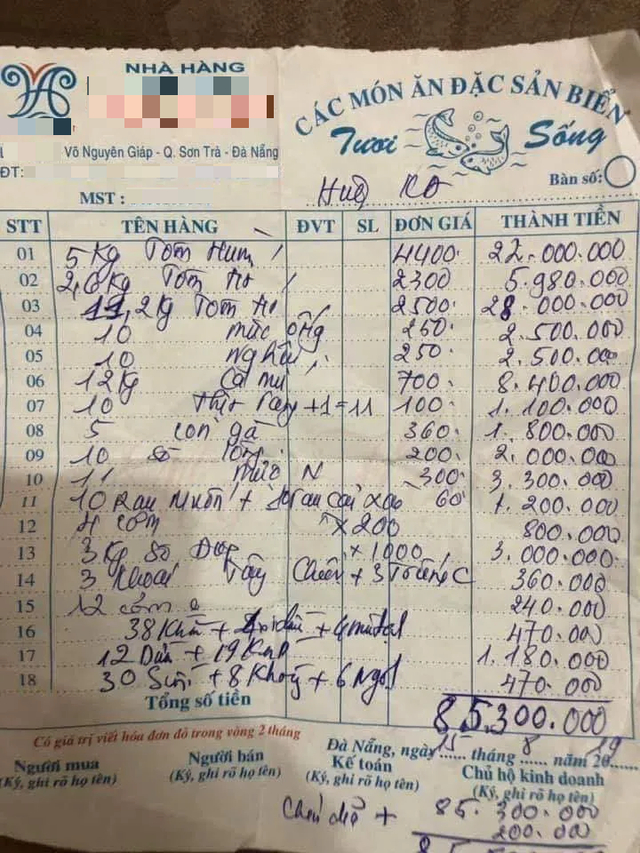 NHÀ HÀNG
CÁC MÓN ĂN ĐẶC SẢN BIỂN
Tươi Sống
Võ Nguyên Giáp - Q. Sơn Trà - Đà Nẵng
ĐT:
MST :
Bàn số:
STT TÊN HÀNG ĐVT SL ĐƠN GIÁ THÀNH TIỀN
01 5 Kg Tôm Hùm 4400 22.000.000
02 2,6 Kg Tôm 2300 5.980.000
03 11,2 Kg Tôm 2500 28.000.000
04 10 mực ống 250 2.500.000
05 10 nghêu 250 2.500.000
06 12 Kg Cá mú 700 8.400.000
07 10 Thịt +1=11 100 1.100.000
08 5 con gà 360 1.800.000
09 10 200 2.000.000
10 11 mực N 300 3.300.000
11 10 Rau Muốn + 60 1.200.000
12 4 cơm x200 800.000
13 3 Kg x1000 3.000.000
14 3 Khoai Tây Chiên + 3 Trứng C 360.000
15 12 cơm 240.000
16 38 Khăn + 470.000
17 12 Dừa + 19 1.180.000
18 30 Suối + 8 + 6 Ngọt 470.000
Tổng số tiền 85.300.000
Có giá trị viết hóa đơn đỏ trong vòng 2 tháng
Đà Nẵng, ngày 15 tháng 8 năm 2019
Người mua Người bán Kế toán Chủ hộ kinh doanh
(Ký, ghi rõ họ tên) (Ký, ghi rõ họ tên) (Ký, ghi rõ họ tên) (Ký, ghi rõ họ tên)
+ 85.300.000
200.000